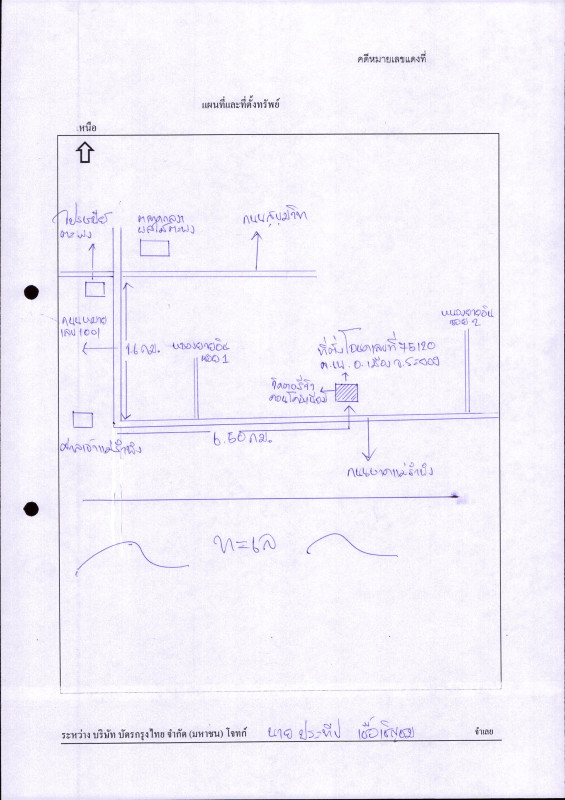 คดีหมายเลขแดงที่
แผนที่และที่ตั้งทรัพย์
หนือ
ไปรษณีย์
ตะพง
ตลาดกลาง
ผลไม้ตะพง
ถนนสุขุมวิท
ถนนหมาย
เลข 1001
1 กม.
ซอย 1
ที่ตั้งโฉนดเลขที่ 75120
อ.เมือง จ.ระยอง
ซอย 2
คอนโดมิเนียม
ศาลเจ้าแม่รำพึง
6.50 กม.
ถนนหาดแม่รำพึง
ทะเล
ระหว่าง บริษัท บัตรกรุงไทย จำกัด (มหาชน) โจทก์ นาย ประทีป จำเลย